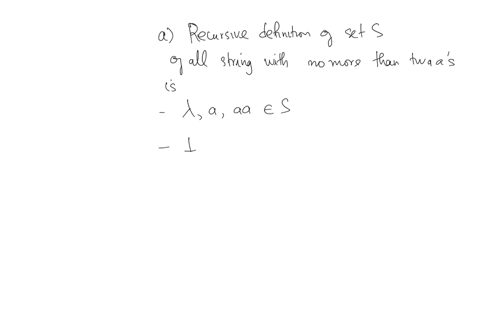 a) Recursive definition of set S
of all string with no more than two a's
is
- λ, a, aa ∈ S
- I